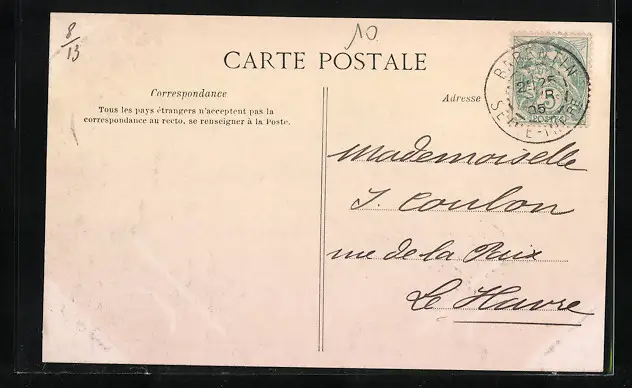 8/13
10
CARTE POSTALE
Correspondance
Tous les pays étrangers n'acceptent pas la
correspondance au recto, se renseigner à la Poste.
Adresse
BARENTIN
SEINE-INFRE
Mademoiselle
J. Coulon
rue de la Paix
Le Havre